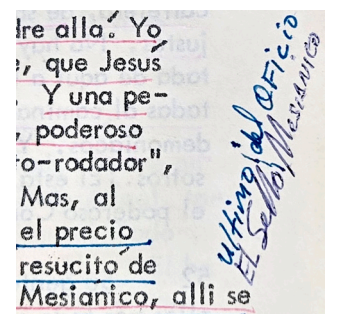 dre alla. Yo
e, que Jesus
. Y una pe-
, poderoso
to-rodador",
Mas, al
el precio
resucito de
Mesianico, alli se
ultimo del OFICIO
El Sello Mesianico